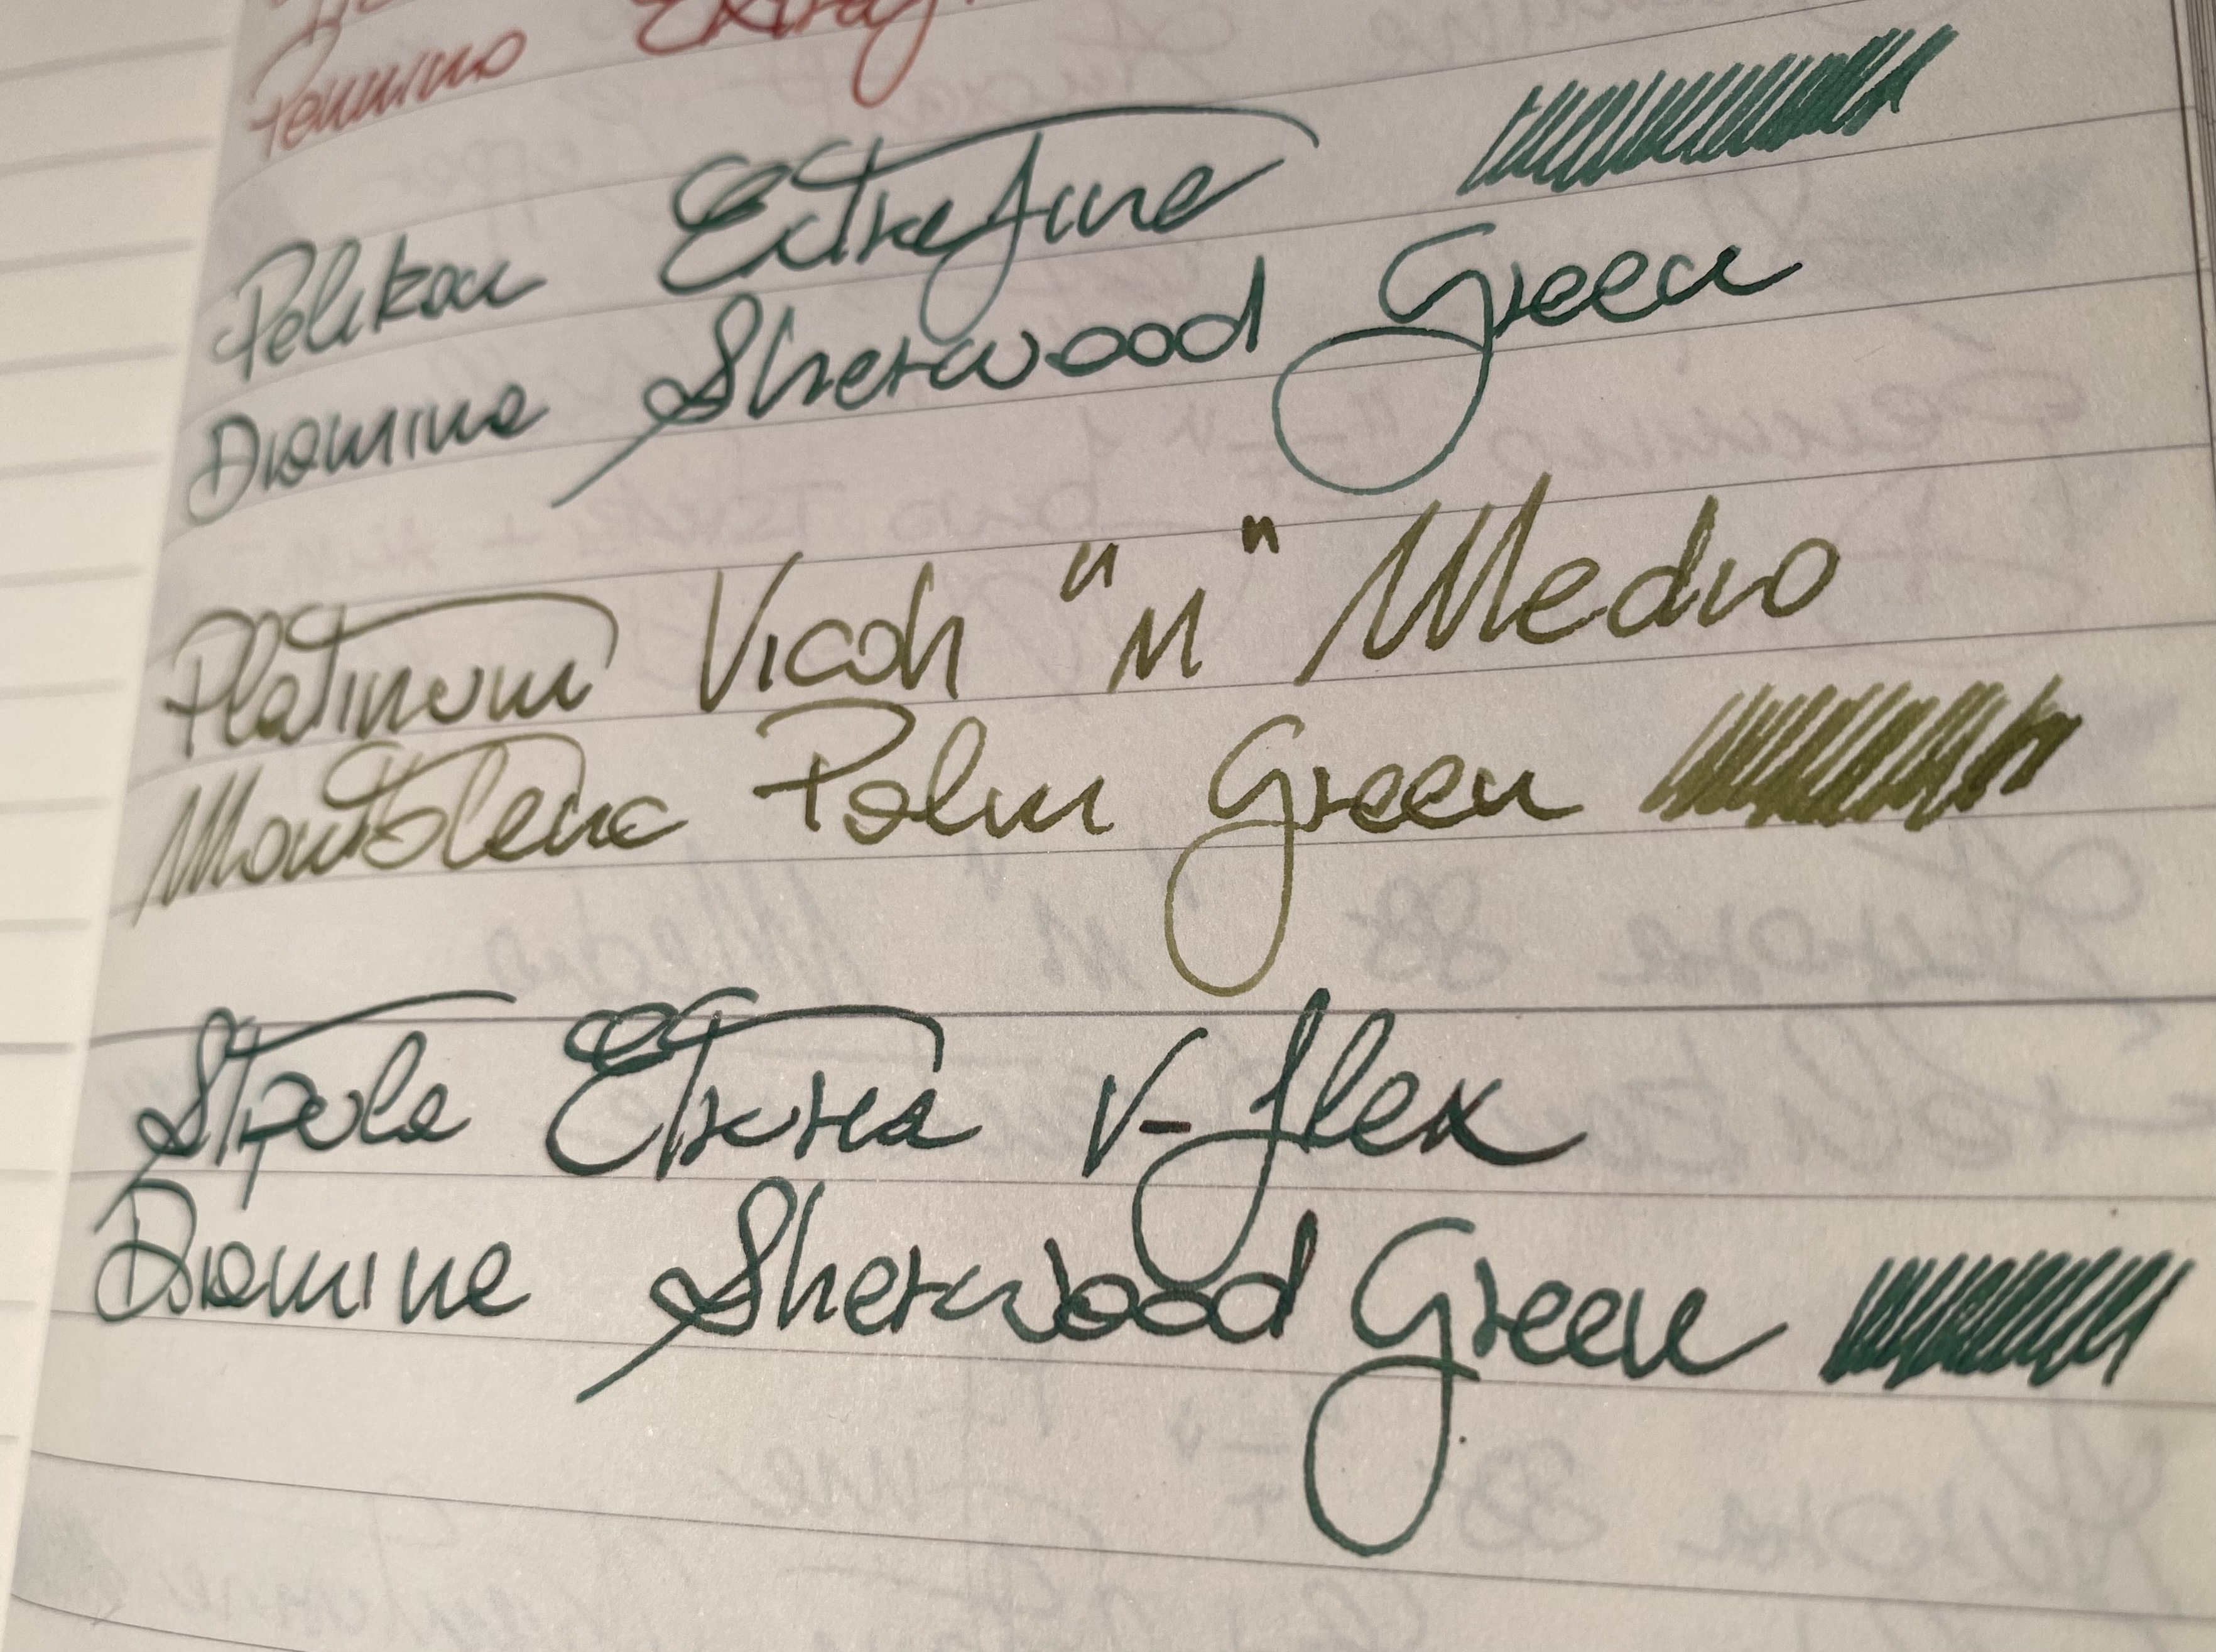 Pennino
Pelikan Extrafine
Diamine Sherwood Green
Platinum Vicoh "M" Medio
Montblanc Palm Green
Stipula Etruria V-flex
Diamine Sherwood Green